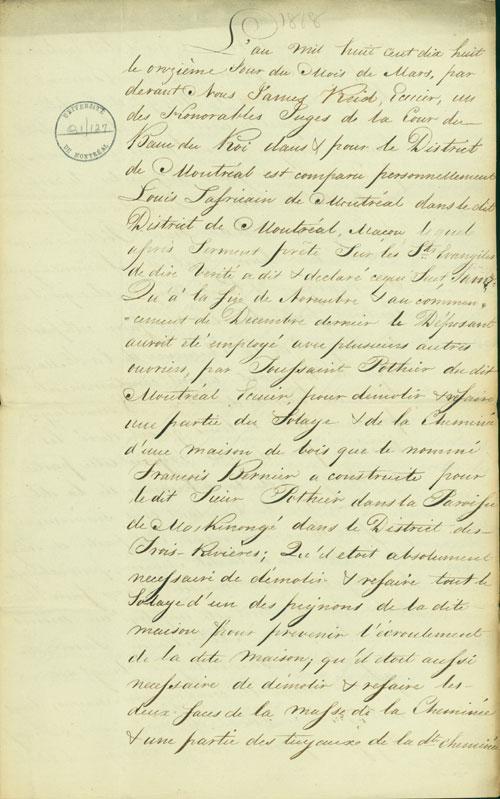 1818
L'an mil huit cent dix huit
le onzième Jour du Mois de Mars, par
devant Nous James Reid, Ecuier, un
des Honorables Juges de la Cour du
Banc du Roi dans & pour le District
de Montréal est comparu personnellement
Louis Lafricain de Montréal dans le dit
District de Montréal, Macon lequel
après Serment prêté Sur les Sts Evangiles
de dire Vérité a dit & déclaré ce qui Suit,
Qu'à la fin de Novembre & au commen-
-cement de Décembre dernier le Déposant
auroit été employé avec plusieurs autres
ouvriers, par Toussaint Pothier du dit
Montréal Ecuier, pour démolir & refaire
une partie du Solage & de la Cheminée
d'une maison de bois que le nommé
Francois Bernier a construite pour
le dit Sieur Pothier dans la Paroisse
de Maskinongé dans le District des
Trois-Rivières; Qu'il etoit absolument
necessaire de démolir & refaire tout le
Solage d'un des pignons de la dite
maison pour prevenir l'écroulement
de la dite maison; qu'il etoit aussi
necessaire de démolir & refaire les
deux faces de la masse de la Cheminée
& une partie des tuyaux de la dte cheminée
UNIVERSITÉ
Q1/127
DE MONTRÉAL